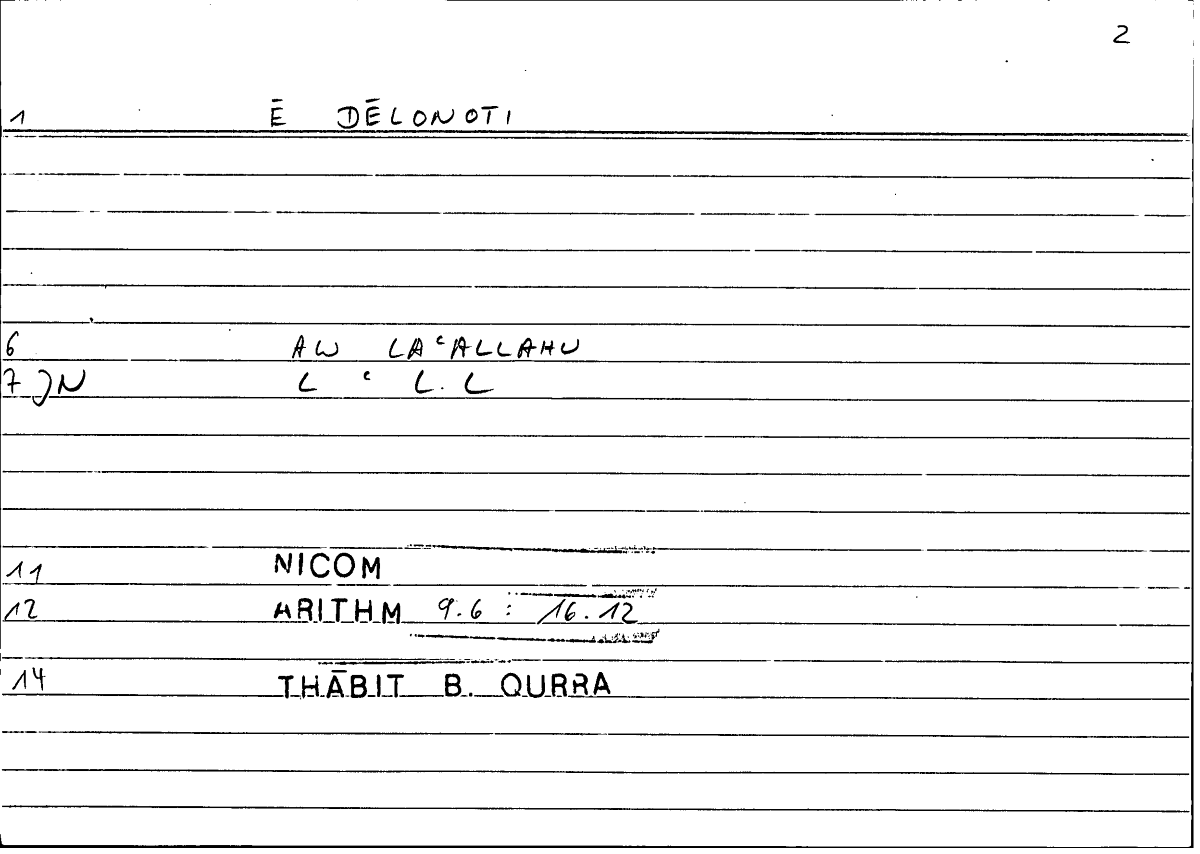 2
1 Ē DĒLONOTI
6 AW LAʿALLAHU
7 JN L ʿ L. L
11 NICOM
12 ARITHM 9.6 : 16.12
14 THĀBIT B. QURRA